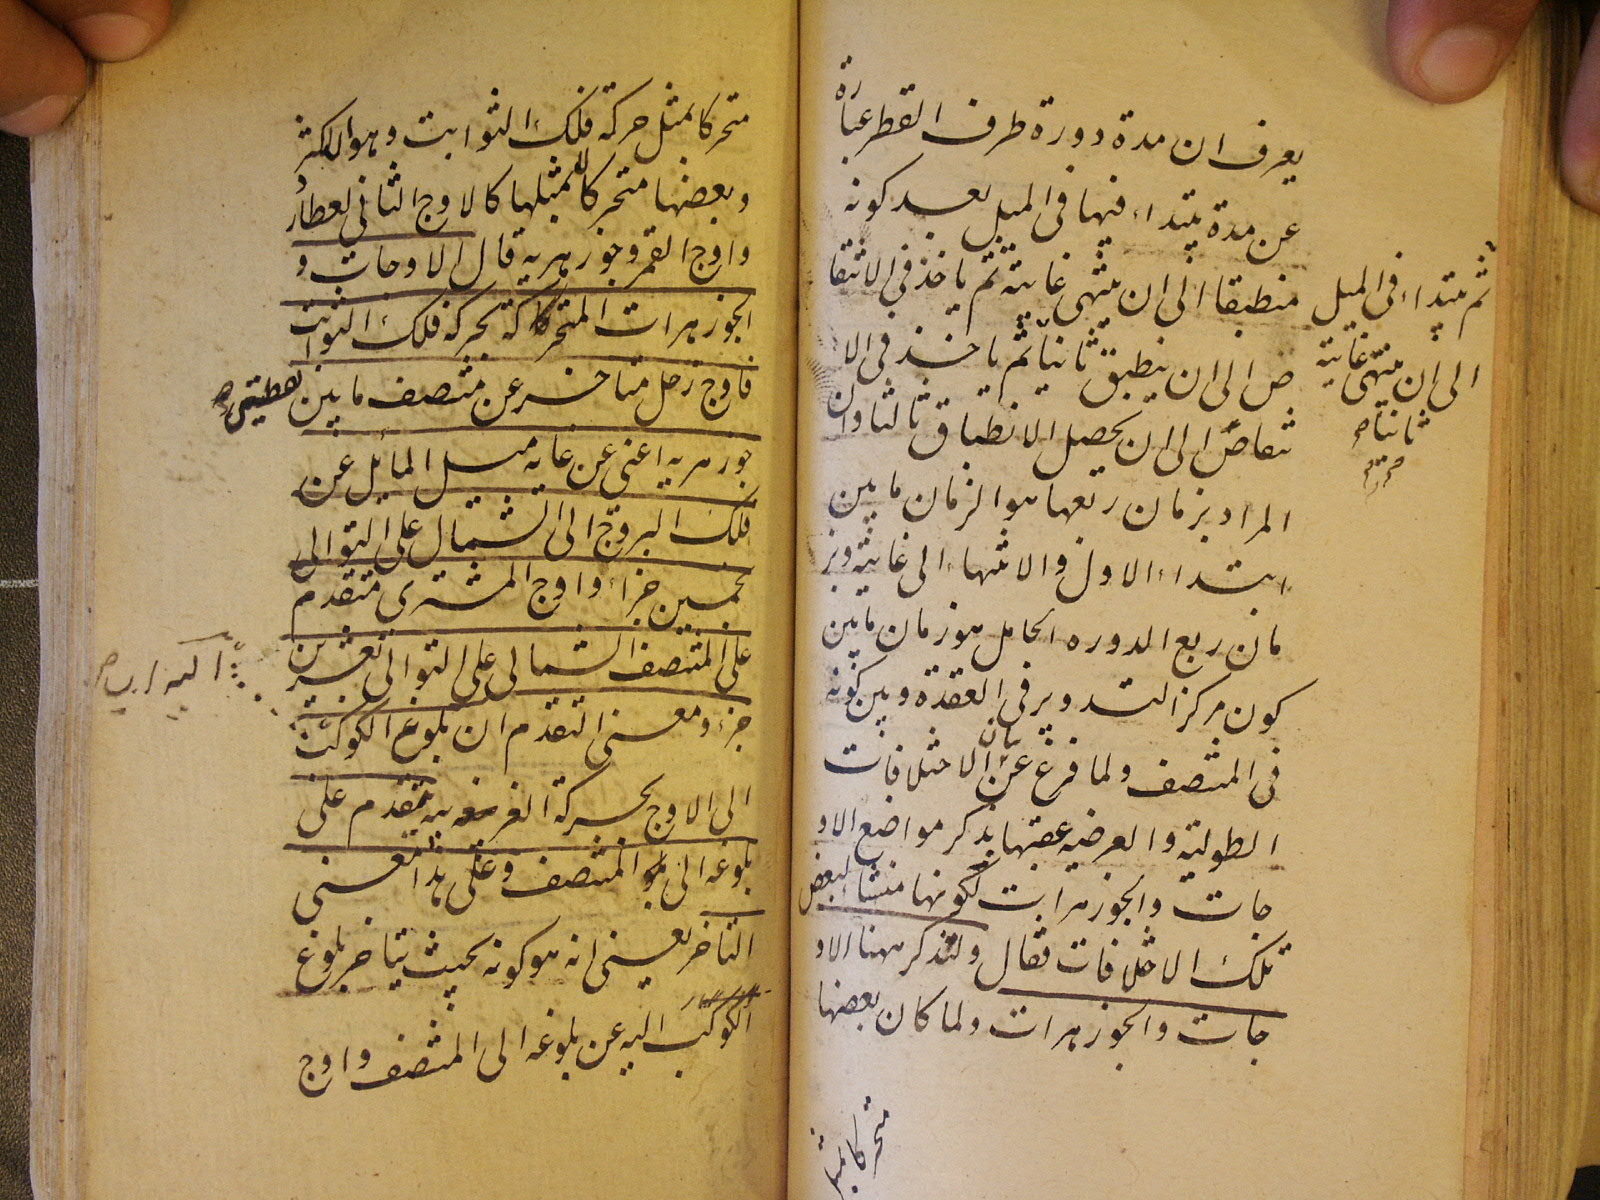 يعرف ان مدة دورة طرف القطر عبارة
عن مدة يبتداء فيها فى الميل بعد كونه
منطبقا الى ان ينتهى غايته ثم ياخذ فى الانتقا
ص الى ان ينطبق ثانيا ثم ياخذ فى الا
نتقاص الى ان يحصل الانطباق ثالثا وان
المراد بزمان ربعها هو الزمان ما بين
ابتداء الاول والانتهاء الى غايته وز
مان ربع الدوره الحامل هو زمان ما بين
كون مركز التدوير فى العقدة وبين كونه
فى المنتصف ولما فرغ عن بيان الاختلافات
الطولية والعرضيه عقبها بذكر مواضع الاو
جات والجوزهرات لكونها منشا لبعض
تلك الاختلافات فقال ولنذكر ههنا الاو
جات والجوزهرات ولما كان بعضها
ثم يبتداء فى الميل
الى ان ينتهى غايته
ثانيا صح
متحركا بمثل
متحركا بمثل حركة فلك الثوابت وهو الاكثر
وبعضها متحركا لا بمثلها كالاوج الثانى لعطارد
واوج القمر وجوزهريه قال الاوجات و
الجوزهرات المتحركة بحركة فلك الثوابت
فاوج زحل متاخر عن منتصف ما بين نقطتى صح
جوزهريه اعنى عن غايه ميل المائل عن
فلك البروج الى الشمال على التوالى
بخمسين جزاء واوج المشترى متقدم
على المنتصف الشمالى على التوالى بعشرين
جزء ومعنى التقدم ان بلوغ الكوكب
الى الاوج بحركة الغربيه يتقدم على
بلوغه الى المنتصف وعلى هذا معنى
التاخر يعنى انه هو كونه بحيث يتاخر بلوغ
الكوكب اليه عن بلوغه الى المنتصف واوج